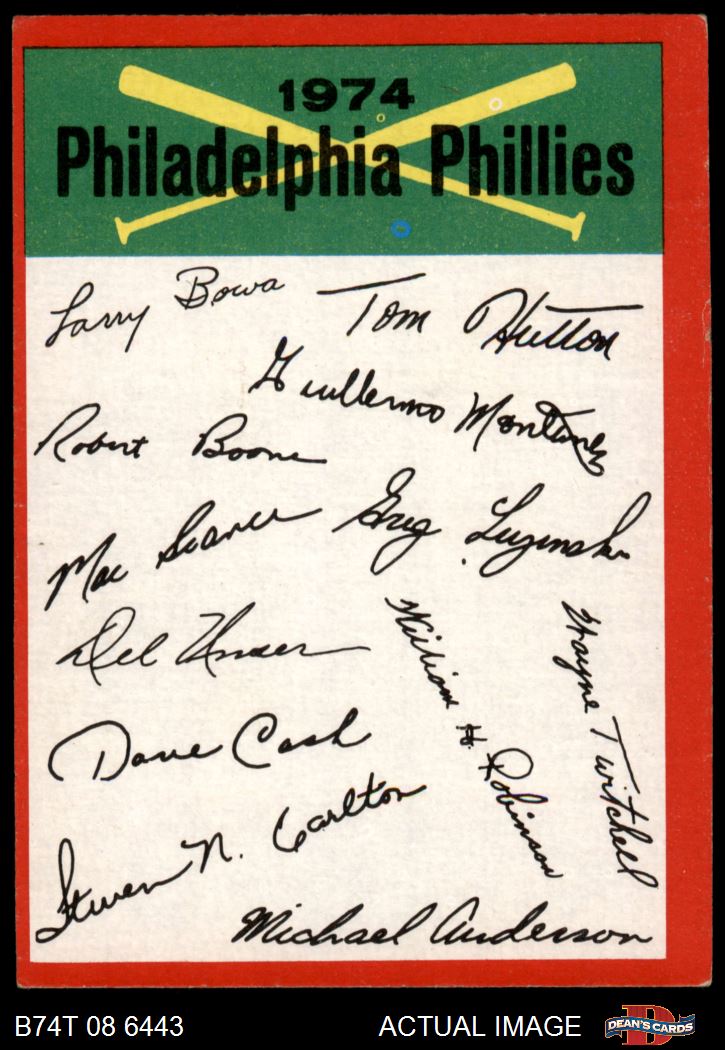 1974
Philadelphia Phillies
Larry Bowa
Tom Hutton
Guillermo Montanez
Robert Boone
Mac Scarce
Greg Luzinski
Del Unser
William H. Robinson
Wayne Twitchell
Dave Cash
Steven N. Carlton
Michael Anderson
B74T 08 6443
ACTUAL IMAGE
DEAN'S CARDS